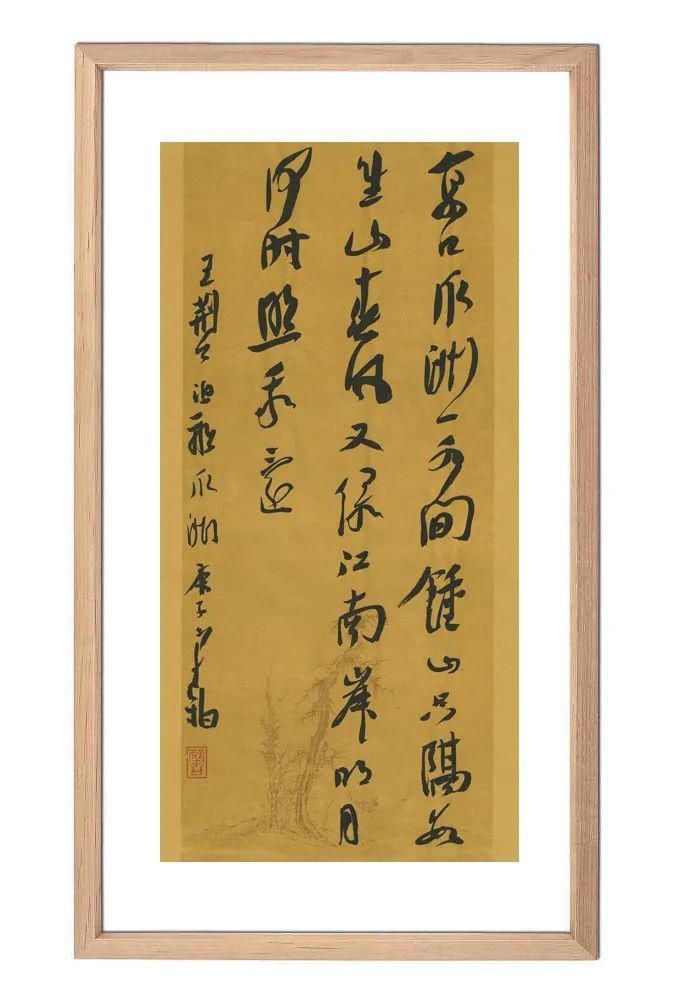 京口瓜洲一水間鍾山只隔数
重山春风又绿江南岸明月
何时照我還
王荆公泊船瓜洲庚子